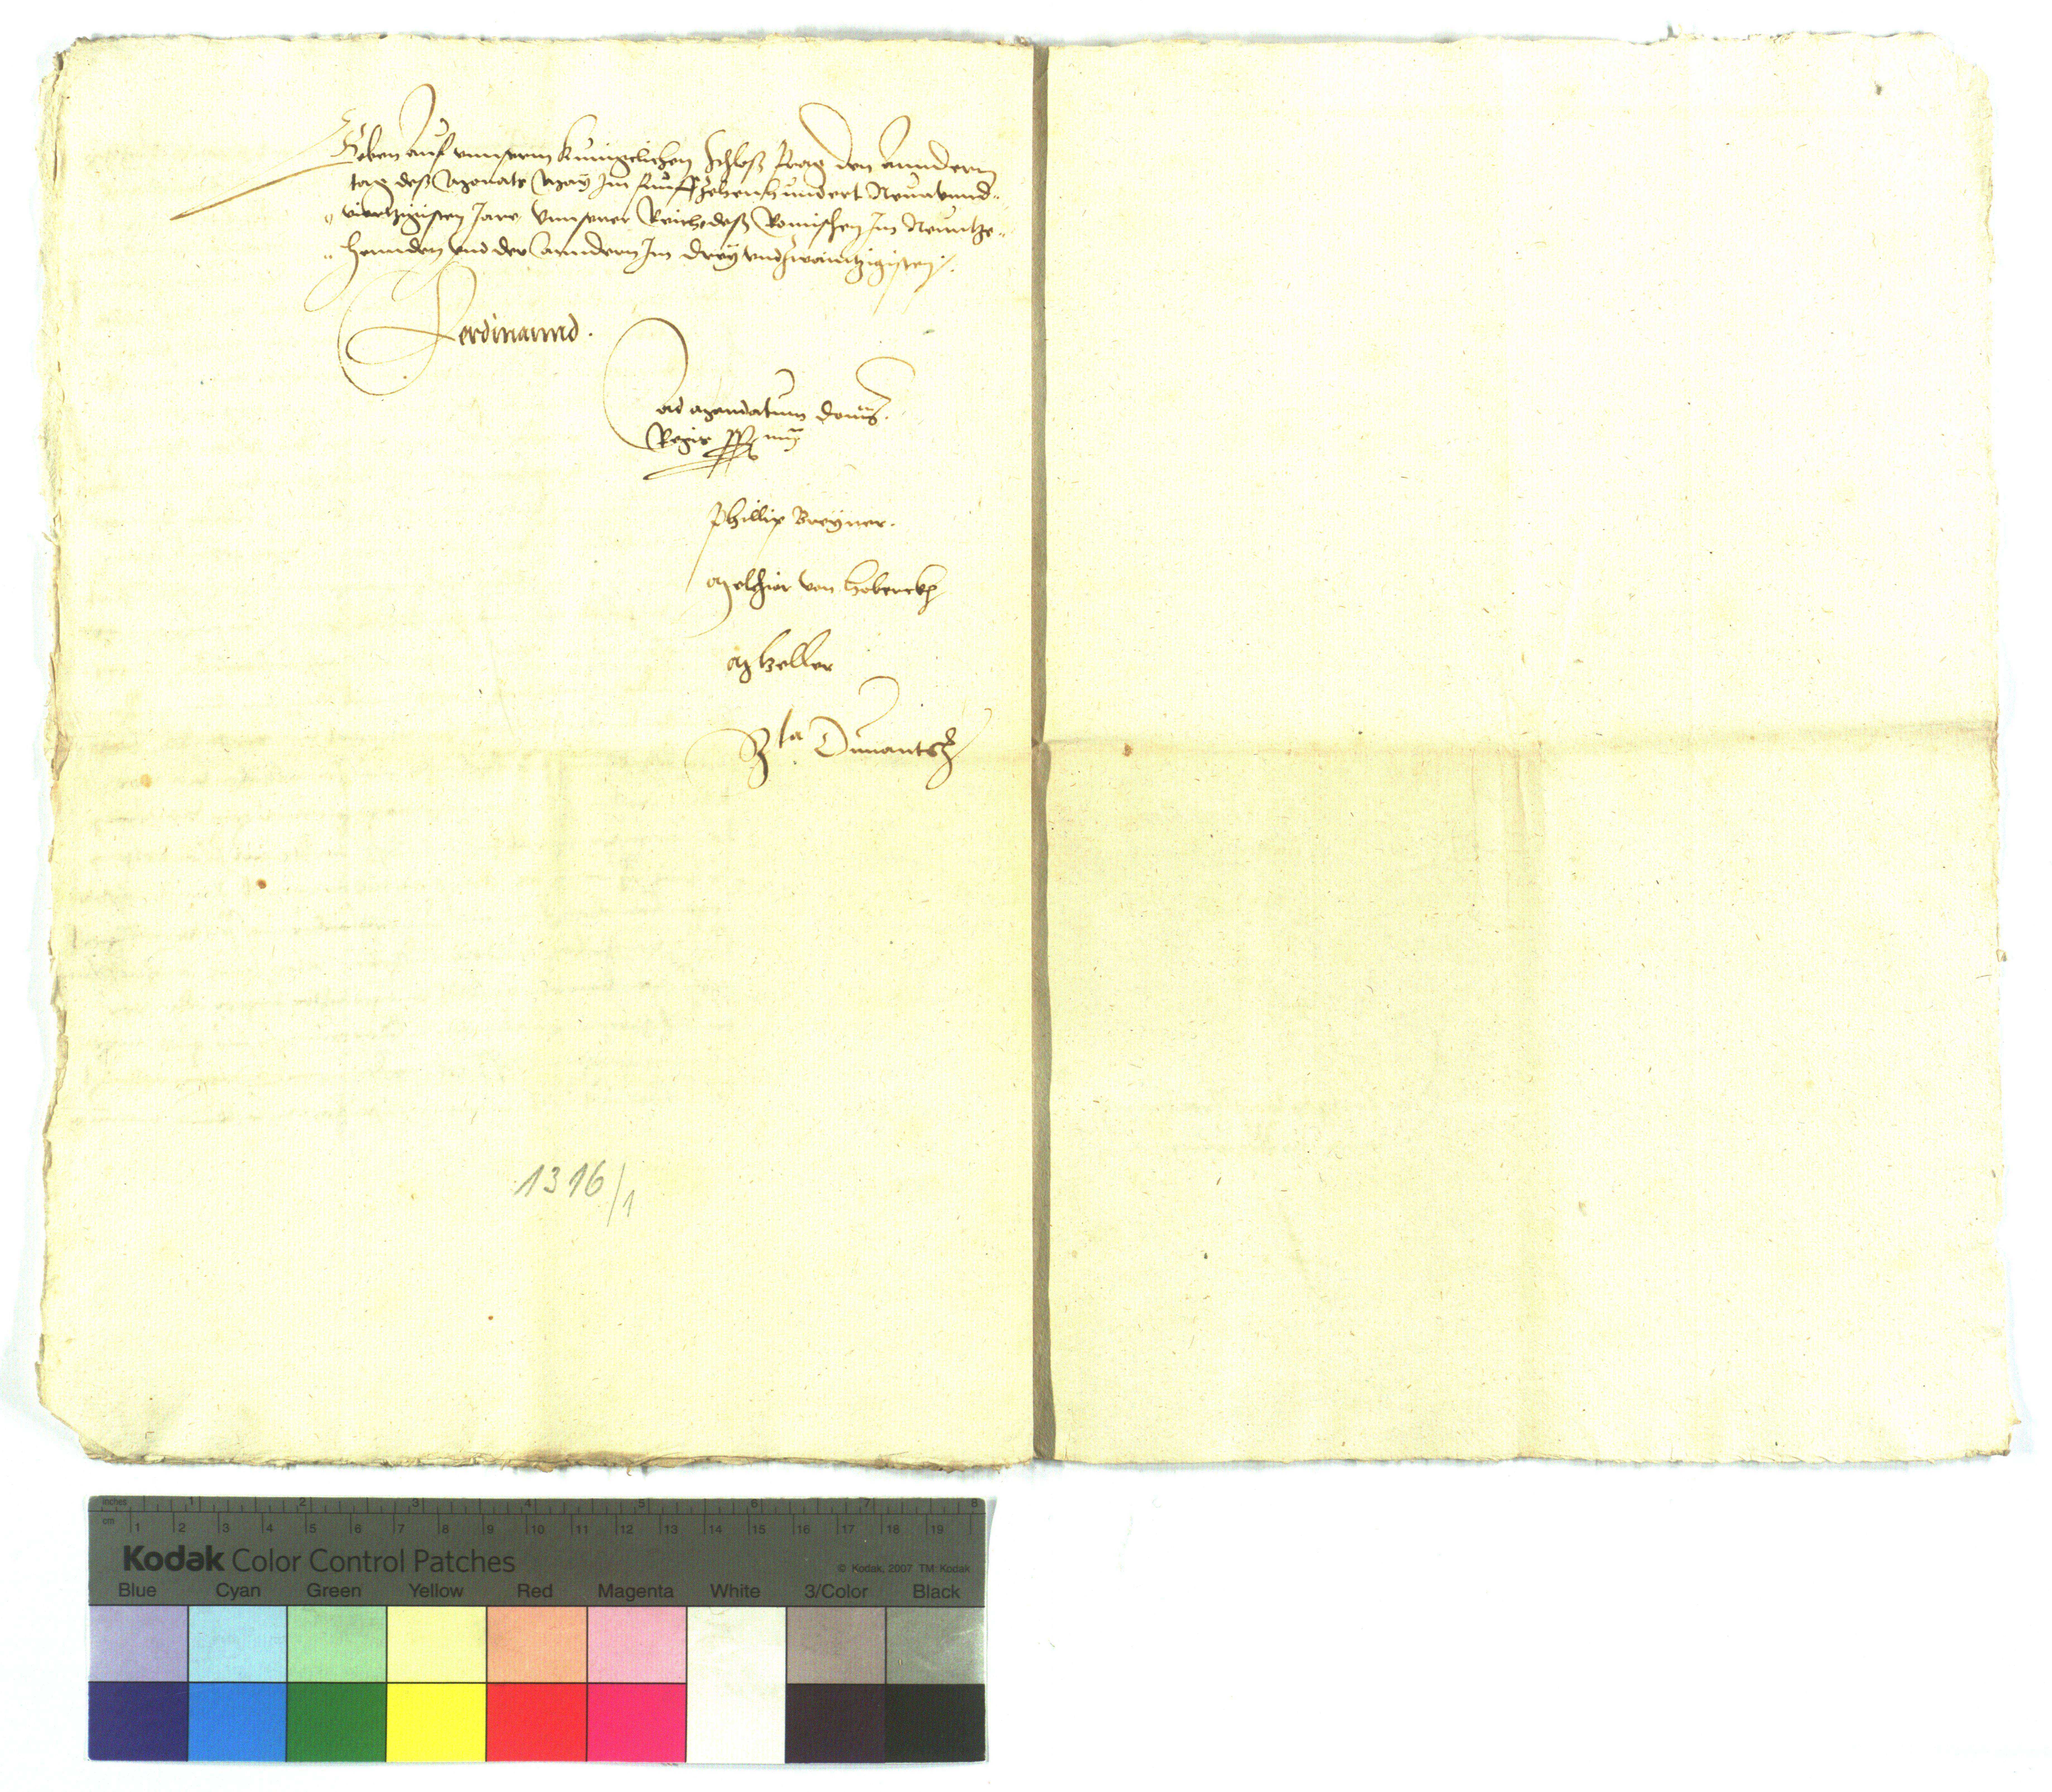 Geben auf vnnserm Kunigclichen Schloß Prag den Anndern
tag deß Monats May Im funfftzehenhundert Neunvnnd-
viertzigisten Jare Vnnserer Reiche deß Romischen Im Neuntze-
hennden vnd der Anndern Im drey vnd zwaintzigisten.
Ferdinannd.
Ad mandatum domi
Regis
Phillip Breyner.
Melchior von Hoberckh
M heller
1316/1
inches 1 2 3 4 5 6 7 8
cm 1 2 3 4 5 6 7 8 9 10 11 12 13 14 15 16 17 18 19
Kodak Color Control Patches
© Kodak, 2007 TM: Kodak
Blue Cyan Green Yellow Red Magenta White 3/Color Black